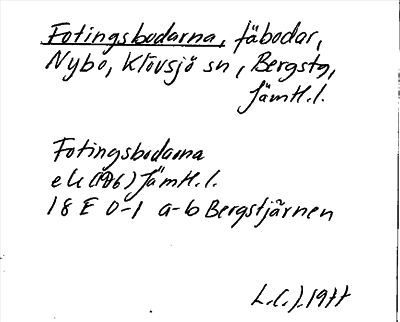 Fotingsbodarna, fäbodar,
Nybo, Klövsjö sn, Bergstg,
Jämtl. l.
Fotingsbodarna
ek (106) Jämtl. l.
18 E 0-1 a-b Bergstjärnen
L.C.J. 1977